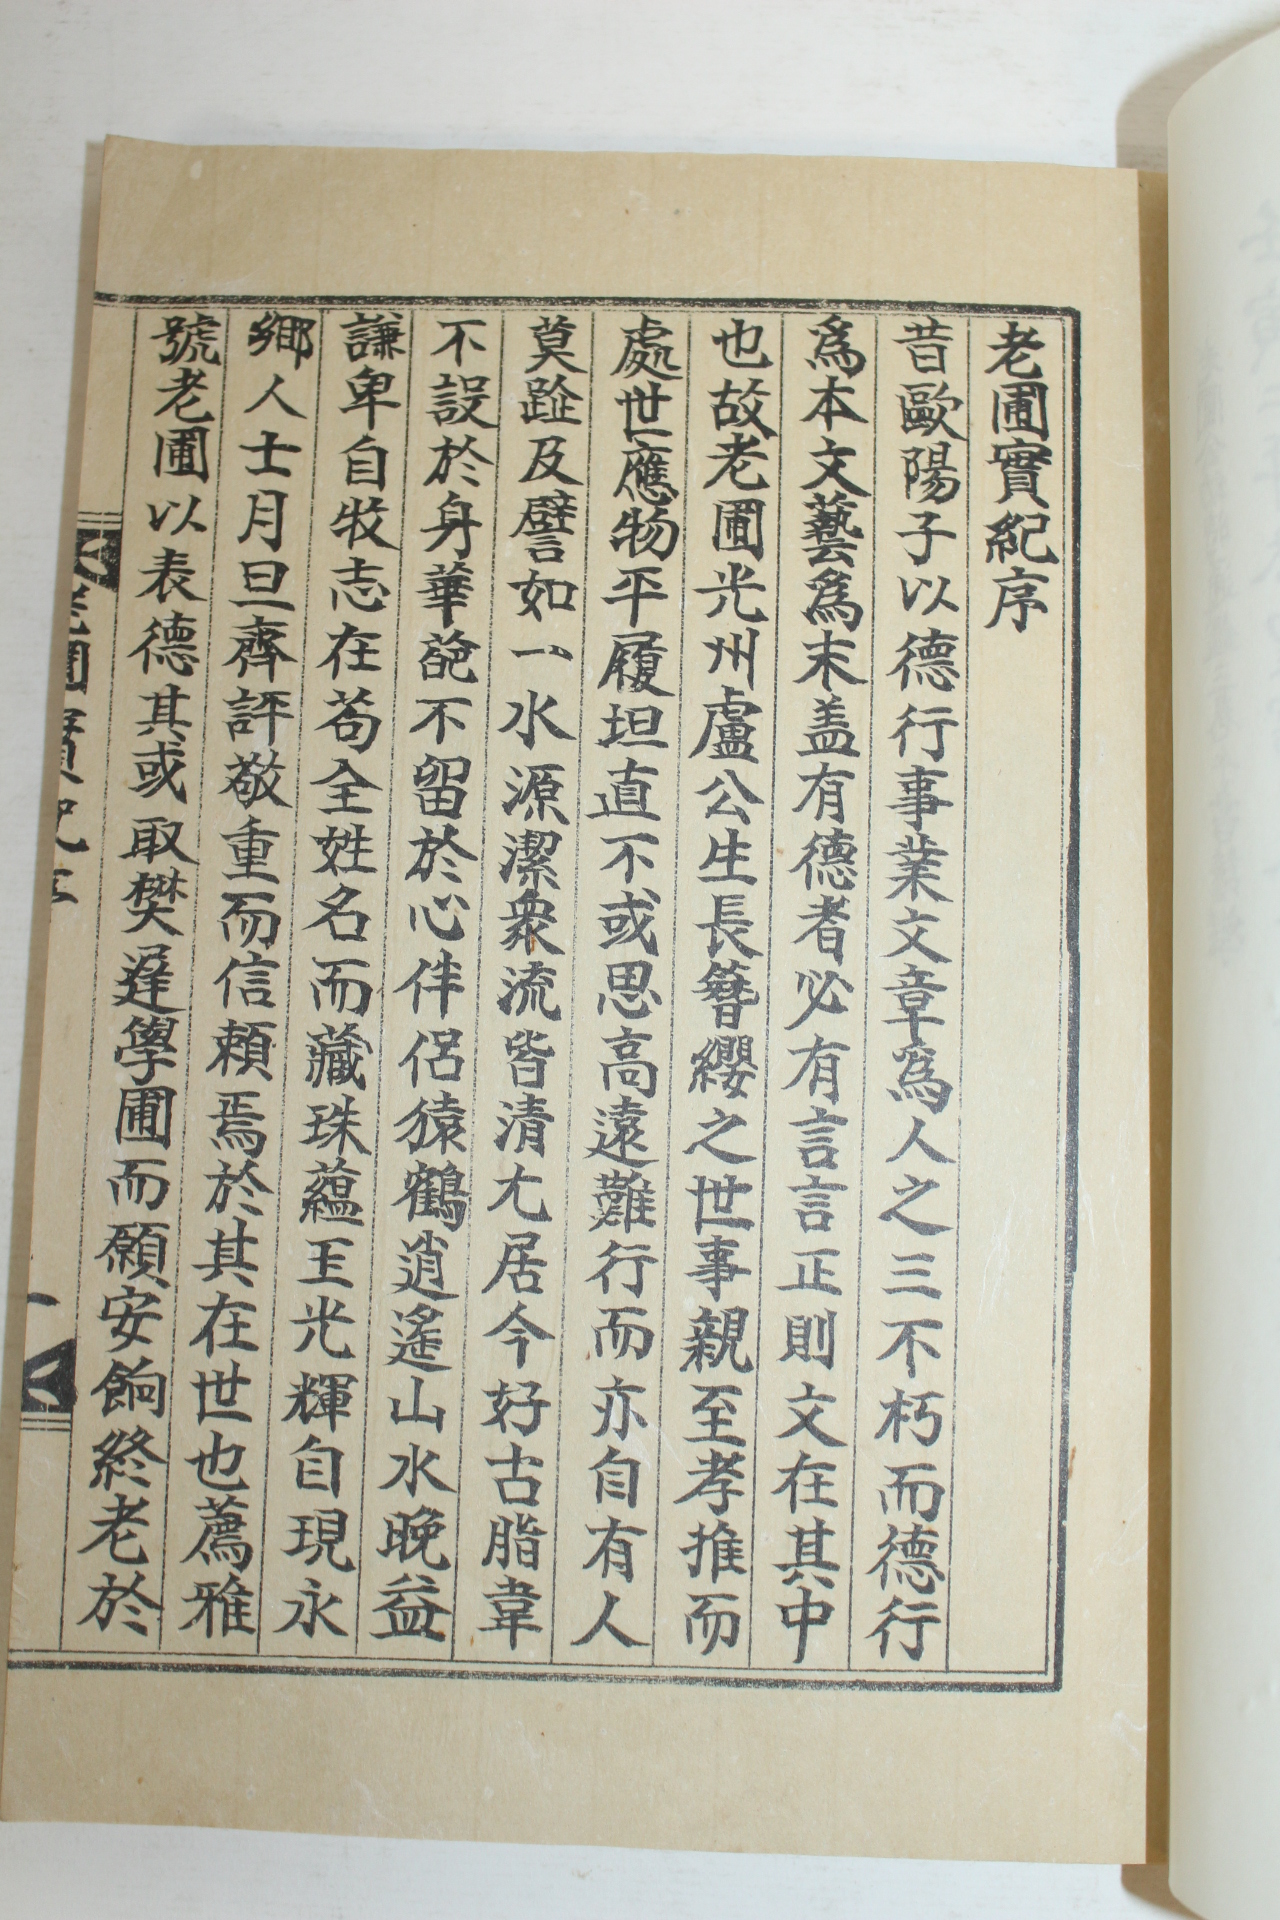 老圃實紀序
昔歐陽子以德行事業文章爲人之三不朽而德行
爲本文藝爲末盖有德者必有言言正則文在其中
也故老圃光州盧公生長簪纓之世事親至孝推而
處世應物平履坦直不或思高遠難行而亦自有人
莫跐及譬如一水源潔衆流皆清尤居今好古脂韋
不設於身華葩不留於心伴侶猿鶴逍遙山水晚益
謙卑自牧志在苟全姓名而藏珠蘊玉光輝自現永
鄉人士月旦齊評敬重而信賴焉於其在世也薦雅
號老圃以表德其或取樊遲學圃而願安餉終老於
老圃實紀序
一